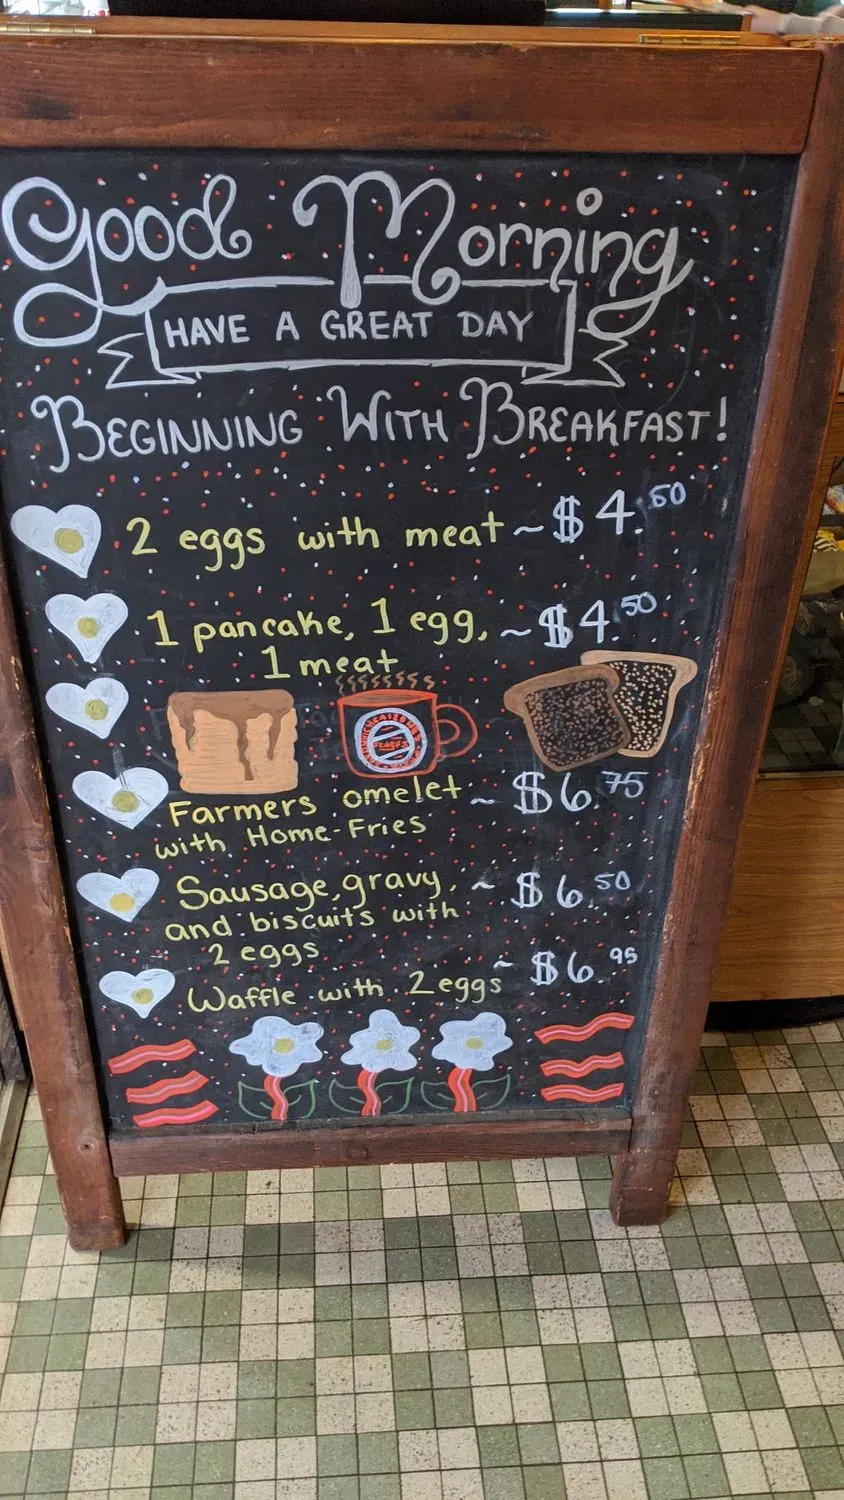 Good Morning
HAVE A GREAT DAY
BEGINNING WITH BREAKFAST!
2 eggs with meat ~ $4.50
1 pancake, 1 egg, ~ $4.50
1 meat
Farmers omelet ~ $6.75
with Home-Fries
Sausage, gravy, ~ $6.50
and biscuits with
2 eggs
Waffle with 2 eggs ~ $6.95